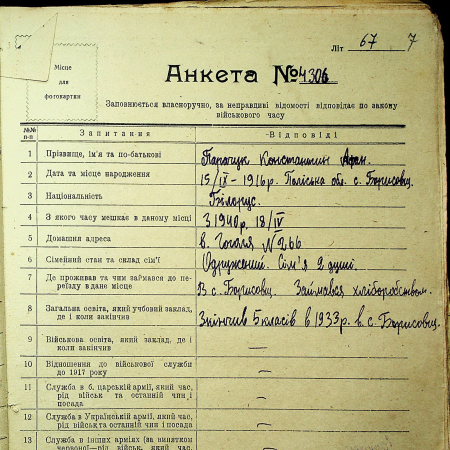 Літ 67 7
Місце
для
фотокартки
Анкета № 4306
Заповнюється власноручно, за неправдиві відомості відповідає по закону
військового часу
№№ п-п Запитання Відповіді
1 Прізвище, ім'я та по-батькові Константин Афан.
2 Дата та місце народження 15/IX - 1916р. Поліська обл. с. Борисовц.
3 Національність Білорус.
4 З якого часу мешкає в даному місці З 1940р. 18/IV
5 Домашня адреса в. Гоголя № 266
6 Сімейний стан та склад сім'ї Одружений. Сім'я 2 душі.
7 Де проживав та чим займався до пе-
реїзду в дане місце В с. Борисовц. Займався хліборобством.
8 Загальна освіта, який учбовий заклад,
де і коли закінчив Закінчив 5 класів в 1933р. в с. Борисовц.
9 Військова освіта, який заклад, де і
коли закінчив —
10 Відношення до військової служби
до 1917 року —
11 Служба в б. царській армії, який час,
рід військ та останній чин і
посада —
12 Служба в Українській армії, який час,
рід військ та останній чин і посада —
13 Служба в інших арміях (за винятком
червоної—рід військ, який час,